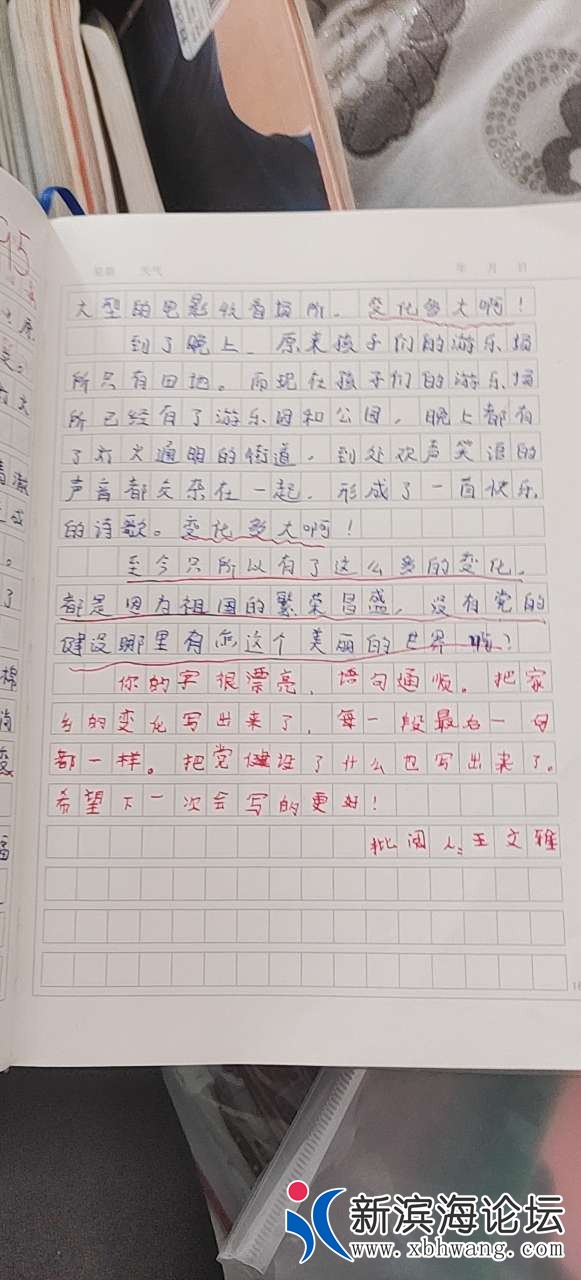 95
星期 天气 年 月 日
大型的电影收看场所。变化多大啊!
到了晚上、原来孩子们的游乐场
所只有田地。而现在孩子们的游乐场
所已经有了游乐园和公园,晚上都有
了灯火通明的街道,到处欢声笑语的
声音都交杂在一起,形成了一首快乐
的诗歌。变化多大啊!
至今只所以有了这么多的变化,
都是因为祖国的繁荣昌盛,没有党的
建设哪里有你这个美丽的世界呐?
你的字很漂亮,语句通顺。把家
乡的变化写出来了,每一段最后一句
都一样。把党建设了什么也写出来了。
希望下一次会写的更好!
批阅人:王文雅
新滨海论坛
www.xbhwang.com